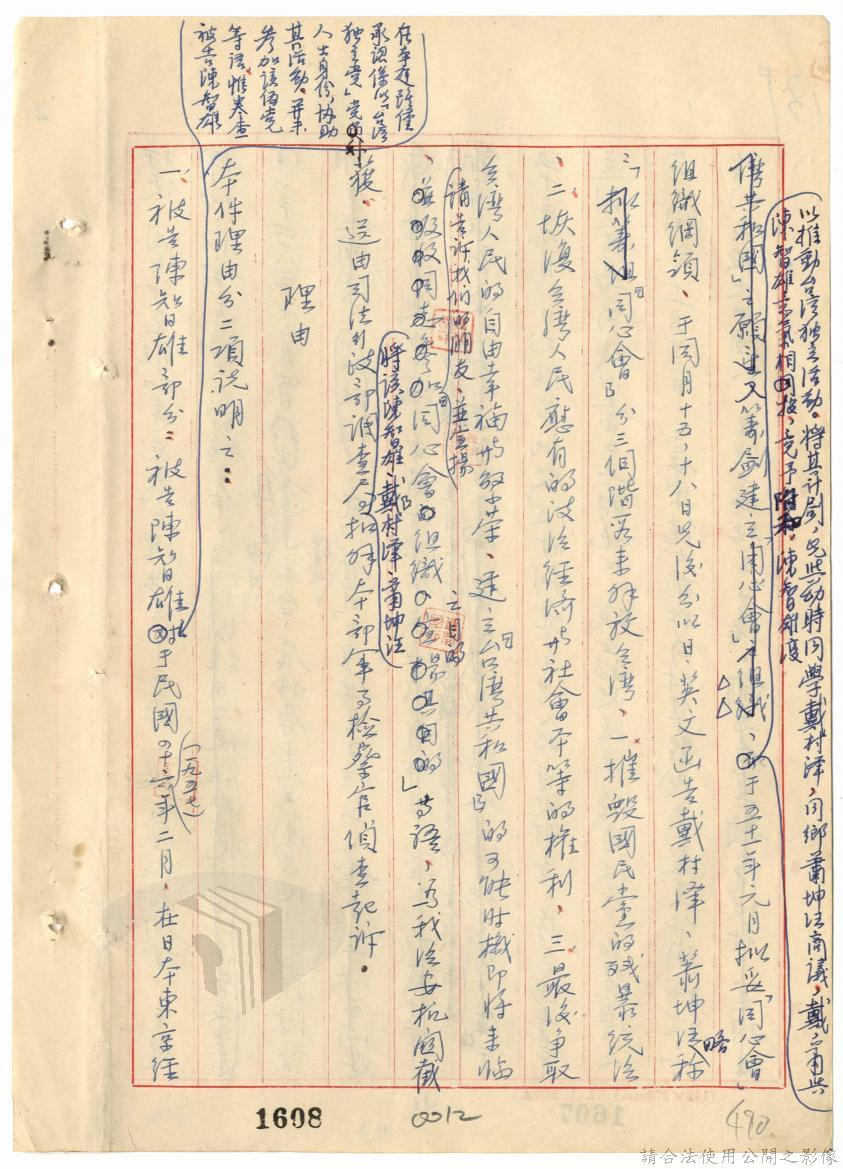 以推動台湾独立活动。將其計劃，先與幼時同學戴村澤，同鄉蕭坤旺商議，戴、蕭與
陳智雄志氣相同投，竟予附和，陳智雄復
僑共和國」之願望又籌劃建立「同心會」之組織，於于五十一年元月拟妥「同心會」
組織綱領、于同月十五、十八日先後分以日、英文函告戴村澤、蕭坤旺略称
「拟籌組「同心會」分三個階段来解放台湾、一摧毀國民党的残暴統治
、二恢復台湾人民應有的政治經濟與社會平等的權利、三最後争取
台湾人民的自由幸福與繁荣、建立「台湾共和國」的可能时機即將来临
請告訴我们的朋友、並宣揚
参加「同心會」組織之目的」等語，為我治安机関截
獲、送由司法行政部調查局將該陳智雄、戴村澤、蕭坤旺扣解本部軍事检察官偵查起訴。
理由
本件理由分二項説明之：
在本庭雖僅
承認係「台湾
独立党」党員外
人士身份，协助
其活动，並未
参加該伪党
等語，惟卷查
被告陳智雄
一、被告陳智雄部分：被告陳智雄於于民國四十六年二月、在日本東京經
（一九五七）
1608
0012
490
請合法使用公開之影像